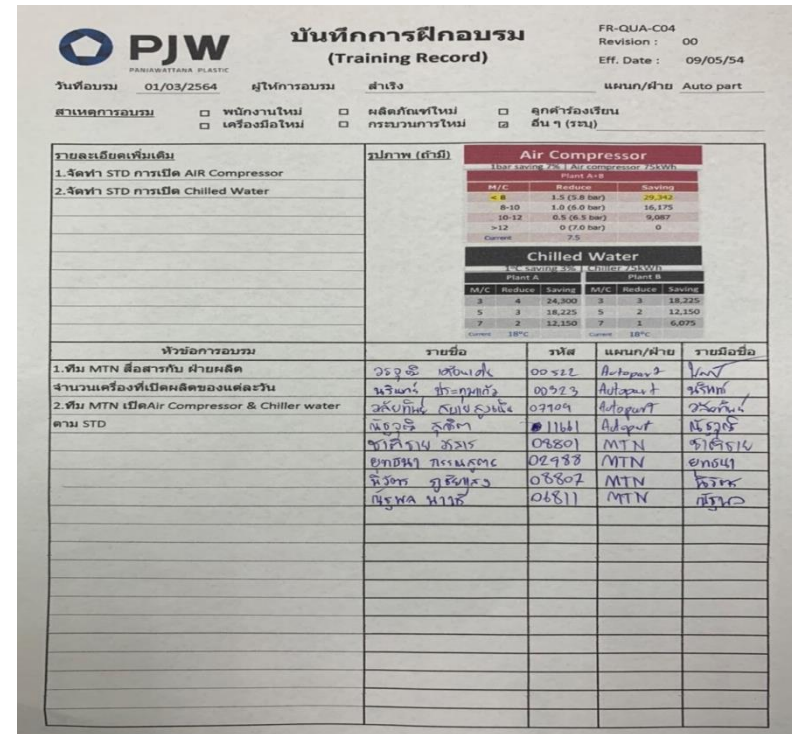 PJW
PANJAWATTANA PLASTIC
บันทึกการฝึกอบรม
(Training Record)
FR-QUA-C04
Revision : 00
Eff. Date : 09/05/54
วันที่อบรม 01/03/2564 ผู้ให้การอบรม สำเริง แผนก/ฝ่าย Auto part
สาเหตุการอบรม พนักงานใหม่ ผลิตภัณฑ์ใหม่ ลูกค้าร้องเรียน
เครื่องมือใหม่ กระบวนการใหม่ อื่น ๆ (ระบุ)
รายละเอียดเพิ่มเติม
1.จัดทำ STD การเปิด AIR Compressor
2.จัดทำ STD การเปิด Chilled Water
รูปภาพ (ถ้ามี)
Air Compressor
1bar saving 7% | Air compressor 75kWh
Plant A+B
M/C Reduce Saving
< 8 1.5 (5.8 bar) 29,342
8-10 1.0 (6.0 bar) 16,175
10-12 0.5 (6.5 bar) 9,087
>12 0 (7.0 bar) 0
Current 7.5
Chilled Water
1°C saving 3% | Chiller 75kWh
Plant A Plant B
M/C Reduce Saving M/C Reduce Saving
3 4 24,300 3 3 18,225
5 3 18,225 5 2 12,150
7 2 12,150 7 1 6,075
Current 18°C Current 18°C
หัวข้อการอบรม รายชื่อ รหัส แผนก/ฝ่าย รายมือชื่อ
1.ทีม MTN สื่อสารกับ ฝ่ายผลิต
จำนวนเครื่องที่เปิดผลิตของแต่ละวัน
2.ทีม MTN เปิดAir Compressor & Chiller water
ตาม STD
00522 Autopart
00523 Autopart
07109 Autopart
11661 Autopart
08801 MTN
ยุทธนา 02988 MTN ยุทธนา
08802 MTN
06811 MTN